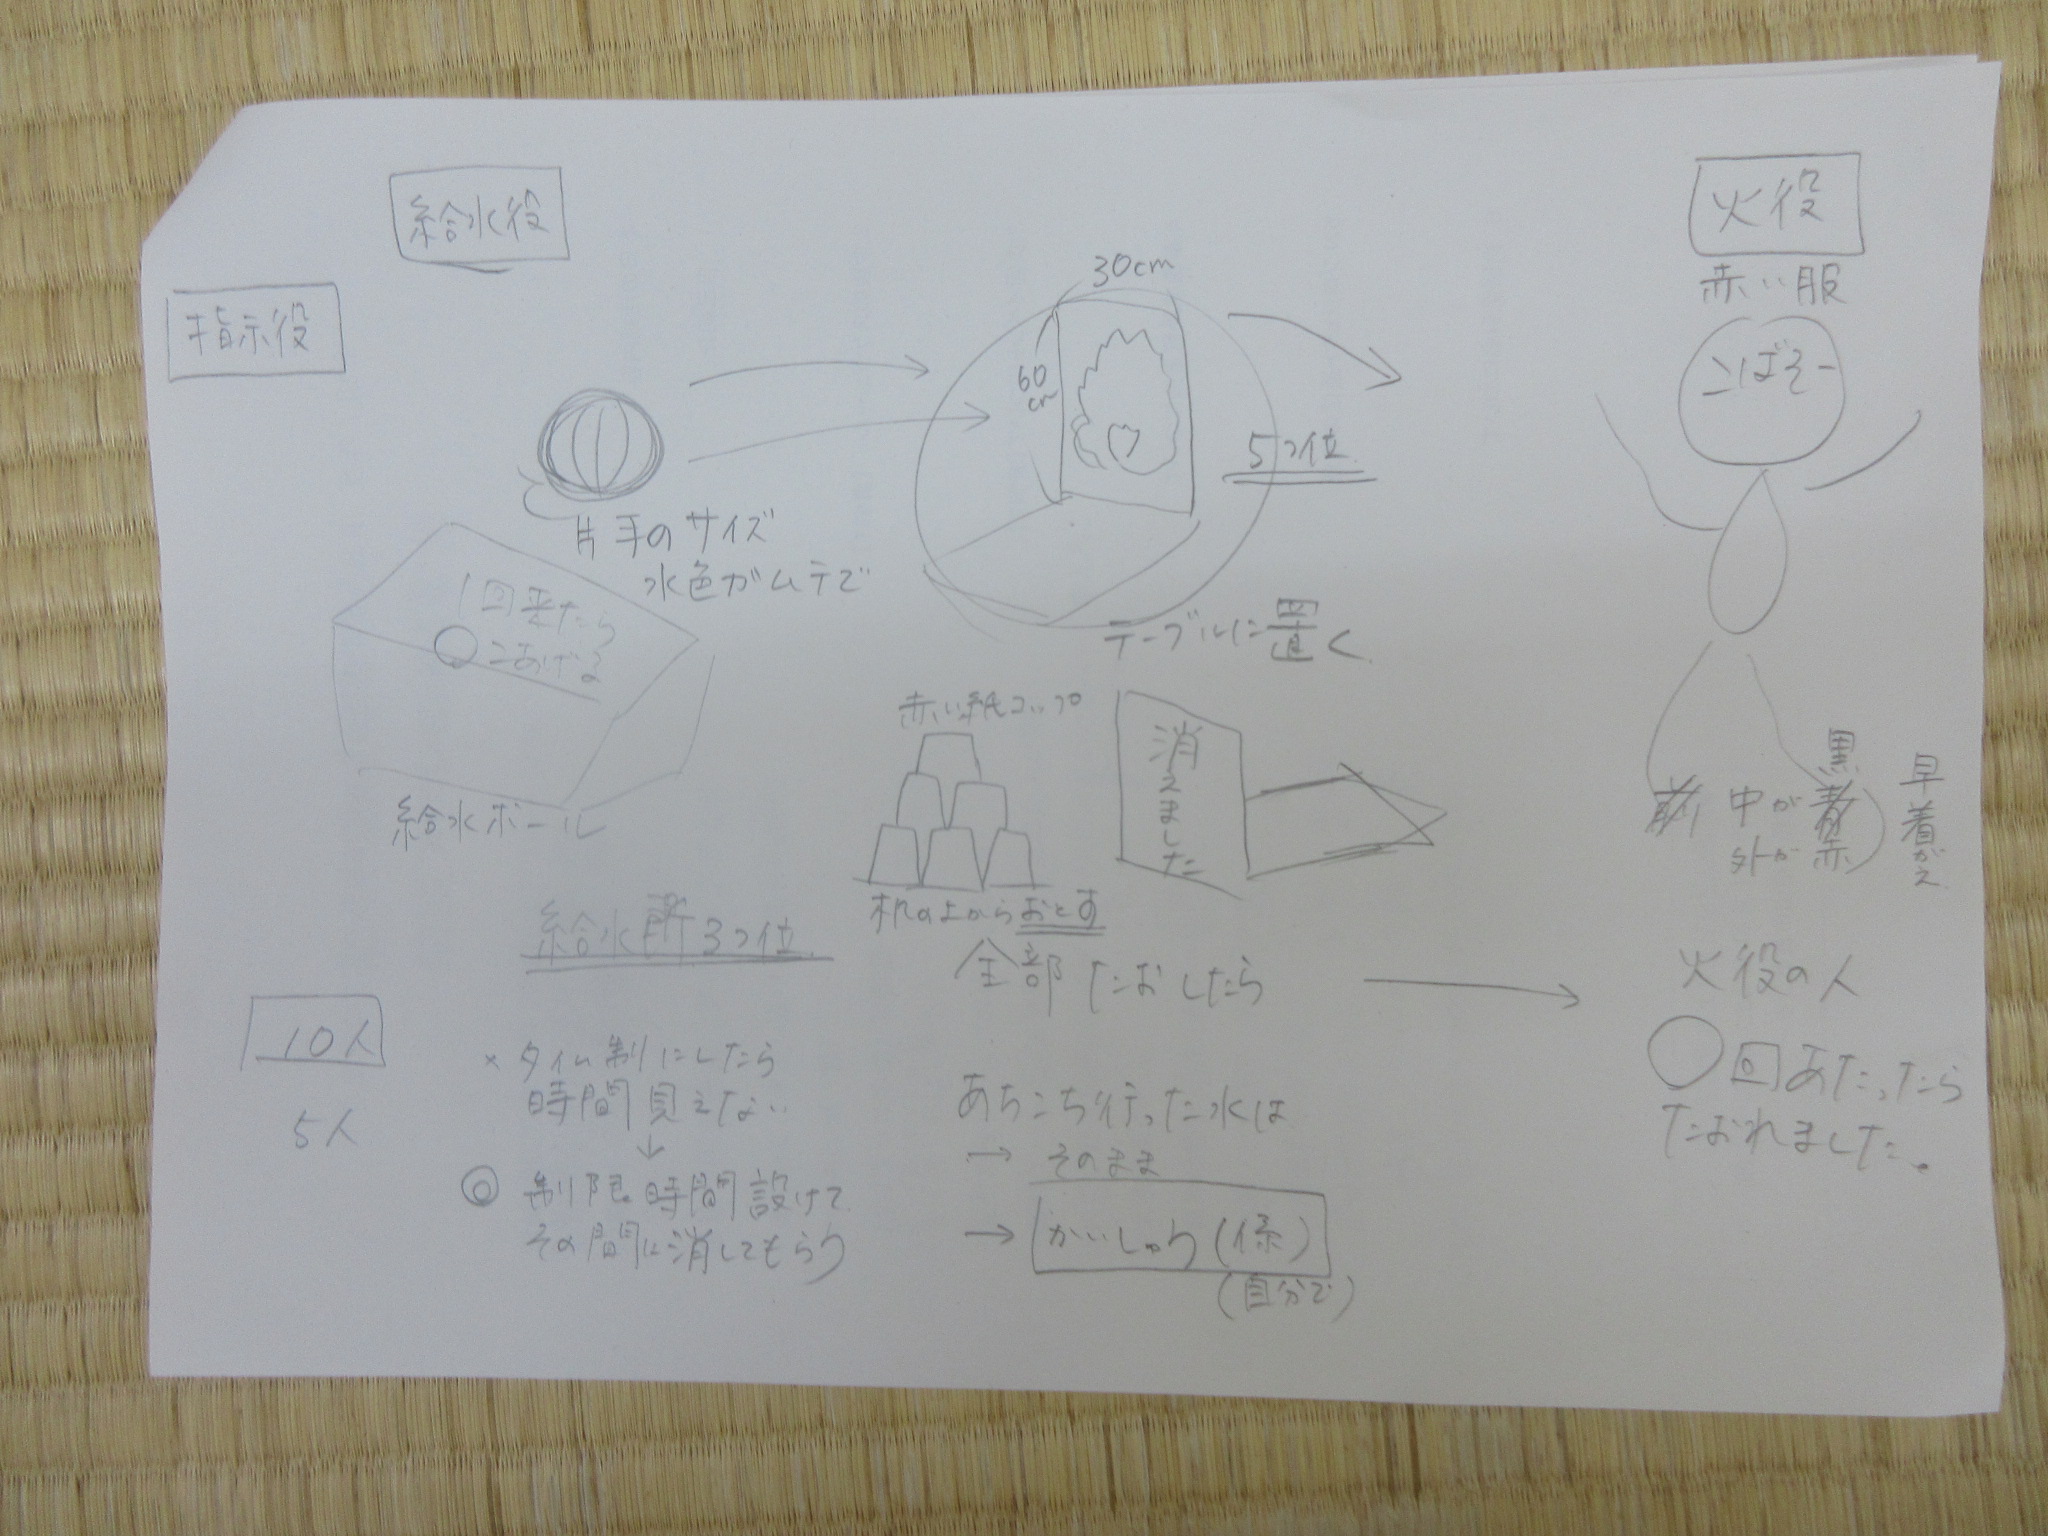 給水役
指示役
片手のサイズ
水色ガムテで
1回来たら
こあげる
給水ボール
30cm
60
cm
5つ位
テーブルに置く
火役
赤い服
こばぞー
赤い紙コップ
机の上からおとす
消えました
中が黒
外が赤
早着がえ
給水所3つ位
全部たおしたら
火役の人
◯回あたったら
たおれました。
10人
5人
×タイム制にしたら
時間見えない
↓
◎制限時間設けて
その間に消してもらう
あちこち行った水は
→そのまま
→かいしゅう(係)
(自分で)